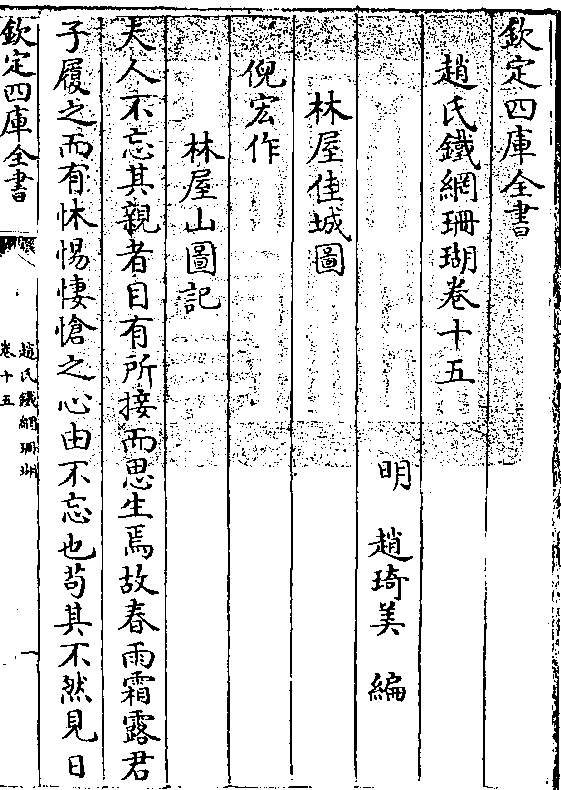 欽定四庫全書
趙氏鐵網珊瑚卷十五
明 趙琦美 編
林屋佳城圖
倪宏作
林屋山圖記
夫人不忘其親者目有所接而思生焉故春雨霜露君
子履之而有怵惕悽愴之心由不忘也苟其不然見日
欽定四庫全書
趙氏鐵網珊瑚
卷十五
一